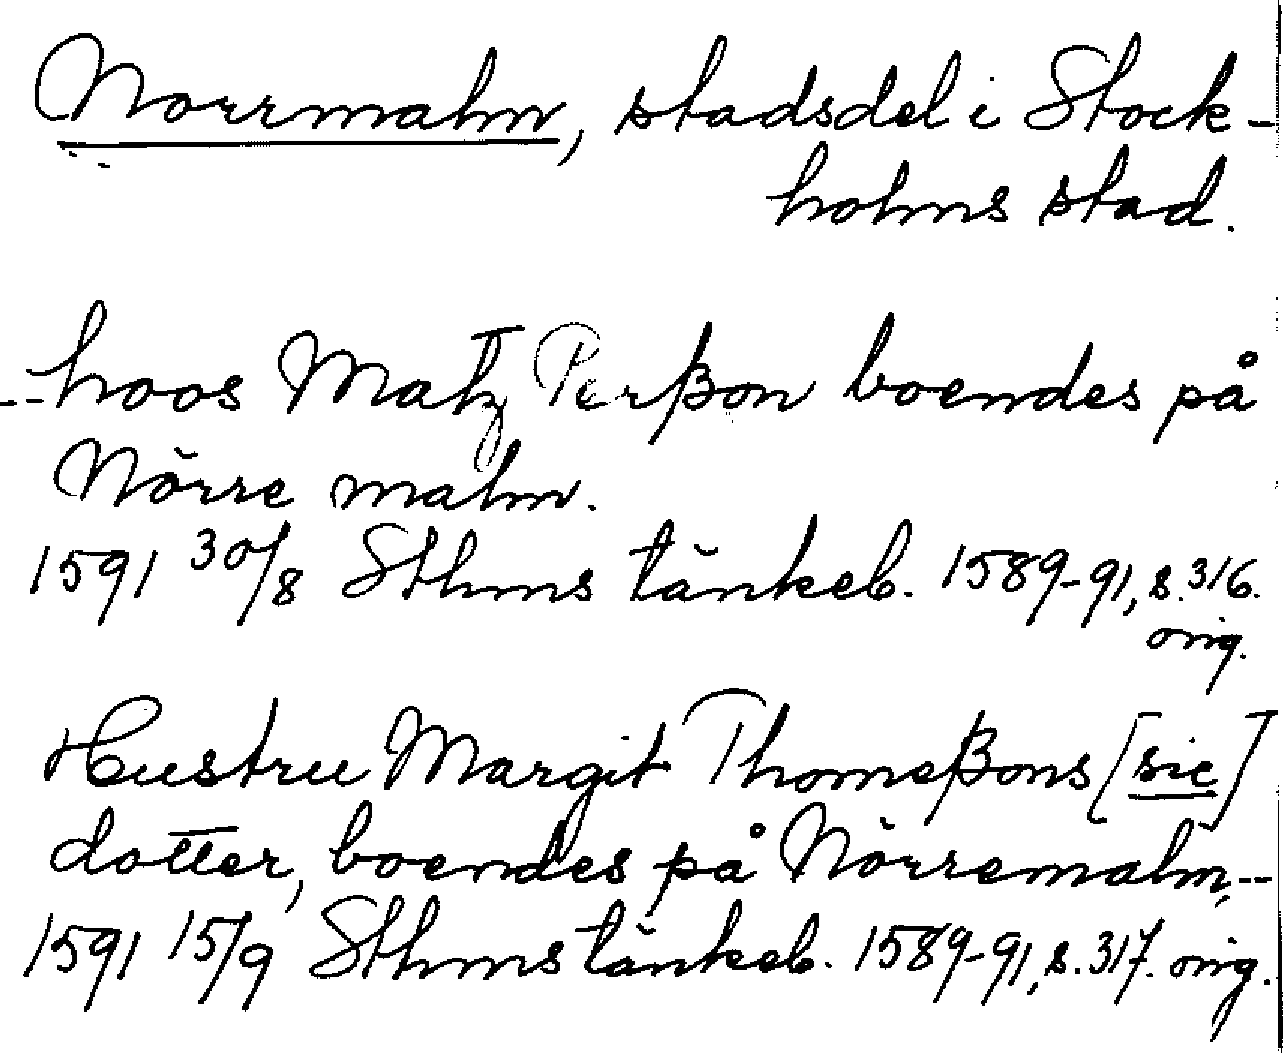 Norrmalm, stadsdel i Stock-
holms stad.
--hoos Matz Perßon boendes på
Nörre malm.
1591 30/8 Sthms tänkeb. 1589-91, s. 316.
orig.
Hustru Margit Thomeßons [sic]
dotter, boendes på Nörremalm,--
1591 15/9 Sthms tänkeb. 1589-91, s. 317. orig.